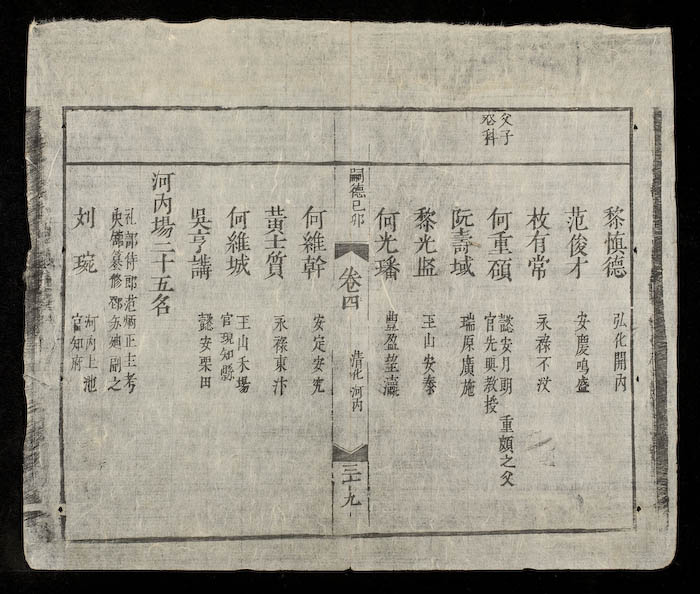 父子
仝科
黎慎德 弘化開內
范俊才 安慶鳴盛
枚有常 永祿不汶
何重碩 懿安月朗 重頗之父
官先興教授
阮壽域 瑞原廣施
黎光監 玉山安泰
何光璠 豊盈塋濤
嗣德己卯
卷四
清化 河內
三十九
何維幹 安定安究
黃士質 永祿東汴
何維城 玉山禾場
官現知縣
吳亨講 懿安栗田
河內場二十五名
礼部侍郎范炳正主考
吏館纂修鄧亦迪副之
刘琬 河內上池
官知府